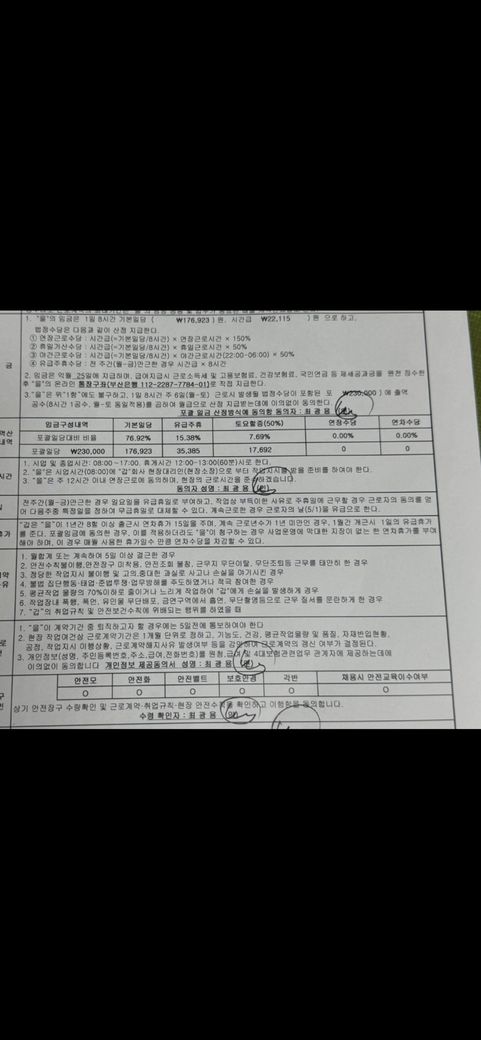 1. "을"의 임금은 1일 8시간 기본일당 ( ₩176,923 ) 원, 시간급 ₩22,115 ) 원 으로 하고,
법정수당은 다음과 같이 산정 지급한다.
① 연장근로수당 : 시간급(=기본일당/8시간) × 연장근로시간 × 150%
② 휴일가산수당 : 시간급(=기본일당/8시간) × 휴일근로시간 × 50%
③ 야간근로수당 : 시간급(=기본일당/8시간) × 야간근로시간(22:00-06:00) × 50%
④ 유급주휴수당 : 전 주간(월~금)만근한 경우 시간급 × 8시간
금
2. 임금은 익월 25일에 지급하며, 급여지급시 근로소득세 및 고용보험료, 건강보험료, 국민연금 등 제세공과금을 원천 징수한
후 "을"의 온라인 통장구좌(부산은행 112-2287-7784-01)로 직접 지급한다.
3."을"은 위"1항"에도 불구하고, 1일 8시간 주 6일(월-토) 근로시 발생될 법정수당이 포함된 포 ₩230,000 ) 에 출역
공수(8시간 1공수, 월-토 동일적용)를 곱하여 월급으로 산정 지급받는데에 이의없이 동의한다.
포괄 임금 산정방식에 동의함 동의자 : 최 광 용
임금구성내역 기본일당 유급주휴 토요할증(50%) 연장수당 연차수당
포괄일당대비 비율 76.92% 15.38% 7.69% 0.00% 0.00%
포괄일당 ₩230,000 176,923 35,385 17,692 0 0
1. 시업 및 종업시간: 08:00 ~17:00, 휴게시간 12:00-13:00(60분)시로 한다.
2. "을"은 시업시간(08:00)에 "갑"회사 현장대리인(현장소장)으로 부터 작업지시를 받을 준비를 하여야 한다.
3. "을"은 주 12시간 이내 연장근로에 동의하며, 현장의 근로시간을 준수하겠습니다.
동의자 성명 : 최 광 용 (인)
전주간(월~금)만근한 경우 일요일을 유급휴일로 부여하고, 작업상 부득이한 사유로 주휴일에 근무할 경우 근로자의 동의를 얻
어 다음주중 특정일을 정하여 무급휴일로 대체할 수 있다. 계속근로한 경우 근로자의 날(5/1)을 유급으로 한다.
"갑은 "을"이 1년간 8할 이상 출근시 연차휴가 15일을 주며, 계속 근로년수가 1년 미만인 경우, 1월간 개근시 1일의 유급휴가
를 준다. 포괄임금에 동의한 경우, 이를 적용하더라도 "을"이 청구하는 경우 사업운영에 막대한 지장이 없는 한 연차휴가를 부여
해야 하며, 이 경우 매월 사용한 휴가일수 만큼 연차수당을 차감할 수 있다.
1. 월합계 또는 계속하여 5일 이상 결근한 경우
2. 안전수칙불이행,안전장구 미착용, 안전조회 불참, 근무지 무단이탈, 무단조퇴등 근무를 태만히 한 경우
3. 정당한 작업지시 불이행 및 고의,중대한 과실로 사고나 손실을 야기시킨 경우
4. 불법 집단행동·태업·준법투쟁·업무방해를 주도하였거나 적극 참여한 경우
5. 평균작업 물량의 70%이하로 줄이거나 느리게 작업하여 "갑"에게 손실을 발생하게 경우
6. 작업장내 폭행, 폭언, 유인물 무단배포, 금연구역에서 흡연, 무단촬영등으로 근무 질서를 문란하게 한 경우
7. "갑"의 취업규칙 및 안전보건수칙에 위배되는 행위를 하였을 때
1. "을"이 계약기간 중 퇴직하고자 할 경우에는 5일전에 통보하여야 한다
2. 현장 작업여건상 근로계약기간은 1개월 단위로 정하고, 기능도, 건강, 평균작업물량 및 품질, 자재반입현황,
공정, 작업지시 이행상황, 근로계약해지사유 발생여부 등을 감안하여 근로계약의 갱신 여부가 결정된다.
3. 개인정보(성명, 주민등록번호,주소,급여,전화번호)를 원청,급여 및 4대보험관련업무 관계자에 제공하는데에
이의없이 동의합니다 개인정보 제공동의서 성명 : 최 광 용 (인)
안전모 안전화 안전벨트 보호안경 각반 채용시 안전교육이수여부
O O O O O O
상기 안전장구 수량확인 및 근로계약·취업규칙·현장 안전수칙을 확인하고 이행함을 동의합니다.
수령 확인자 : 최 광 용 (인)